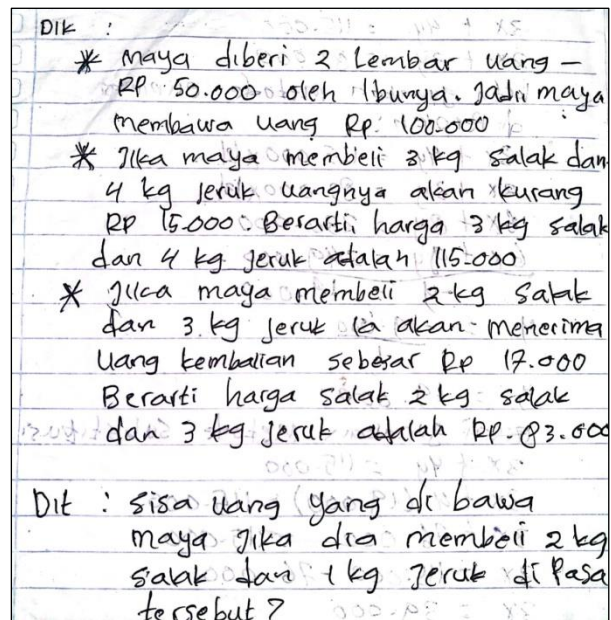 DIK :
* Maya diberi 2 Lembar uang –
RP 50.000 oleh Ibunya. Jadi maya
membawa uang Rp. 100.000
* Jika maya membeli 3 kg salak dan
4 kg jeruk uangnya akan kurang
RP 15.000. Berarti harga 3 kg salak
dan 4 kg jeruk adalah 115.000
* Jika maya membeli 2 kg salak
dan 3 kg jeruk ia akan menerima
uang kembalian sebesar Rp 17.000
Berarti harga salak 2 kg salak
dan 3 kg jeruk adalah RP. 83.000
Dit : sisa uang yang di bawa
maya Jika dia membeli 2 kg
salak dan 1 kg jeruk di Pasa
tersebut ?